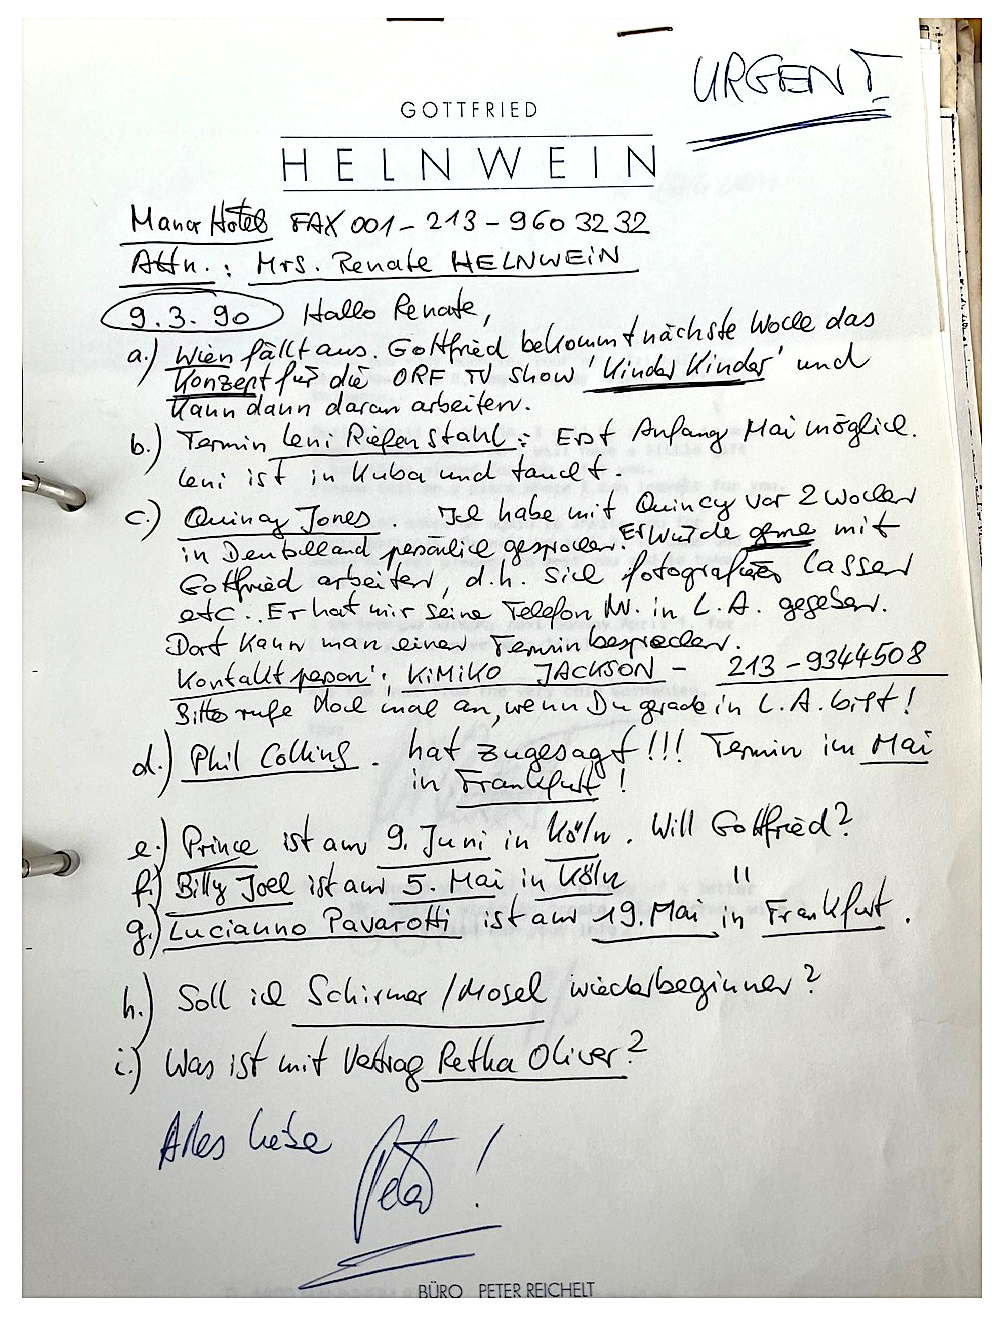 URGENT
GOTTFRIED
HELNWEIN
Manor Hotel FAX 001-213-960 32 32
Attn.: Mrs. Renate HELNWEIN
9.3.90 Hallo Renate,
a.) Wien fällt aus. Gottfried bekommt nächste Woche das
Konzept für die ORF TV Show 'Kinder Kinder' und
kann dann daran arbeiten.
b.) Termin Leni Riefenstahl: Erst Anfang Mai möglich.
Leni ist in Kuba und taucht.
c.) Quincy Jones. Ich habe mit Quincy vor 2 Wochen
in Deutschland persönlich gesprochen. Er würde gerne mit
Gottfried arbeiten, d.h. sich fotografieren lassen
etc.. Er hat mir seine Telefon Nr. in L.A. gegeben.
Dort kann man einen Termin besprechen.
Kontaktperson: KiMiKO JACKSON - 213-9344508
Bitte rufe doch mal an, wenn Du gerade in L.A. bist!
d.) Phil Collins. hat zugesagt!!! Termin im Mai
in Frankfurt!
e.) Prince ist am 9. Juni in Köln. Will Gottfried?
f.) Billy Joel ist am 5. Mai in Köln "
g.) Lucianno Pavarotti ist am 19. Mai in Frankfurt.
h.) Soll ich Schirmer/Mosel wiederbeginnen?
i.) Was ist mit Vertrag Retha Oliver?
Alles Liebe
Peter!
BÜRO PETER REICHELT